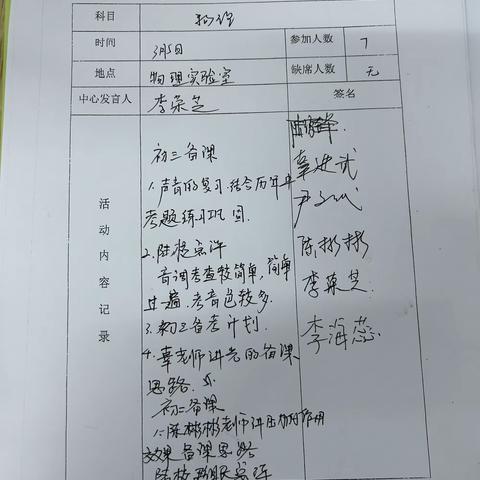 科目 物理
时间 3月5日 参加人数 7
地点 物理实验室 缺席人数 无
中心发言人 李荣芝 签名
活动内容记录
初三备课
1.声音的复习.结合历年中
考题练习巩固.
2.陆校点评
音调考查较简单,简单
过一遍.考音色较多.
3.初三备考计划.
4.辜老师讲光的备课
思路.
初二备课
1.陈彬彬老师讲压力作用
效果备课思路
辜进武
陈彬彬
李荣芝
李海蕊